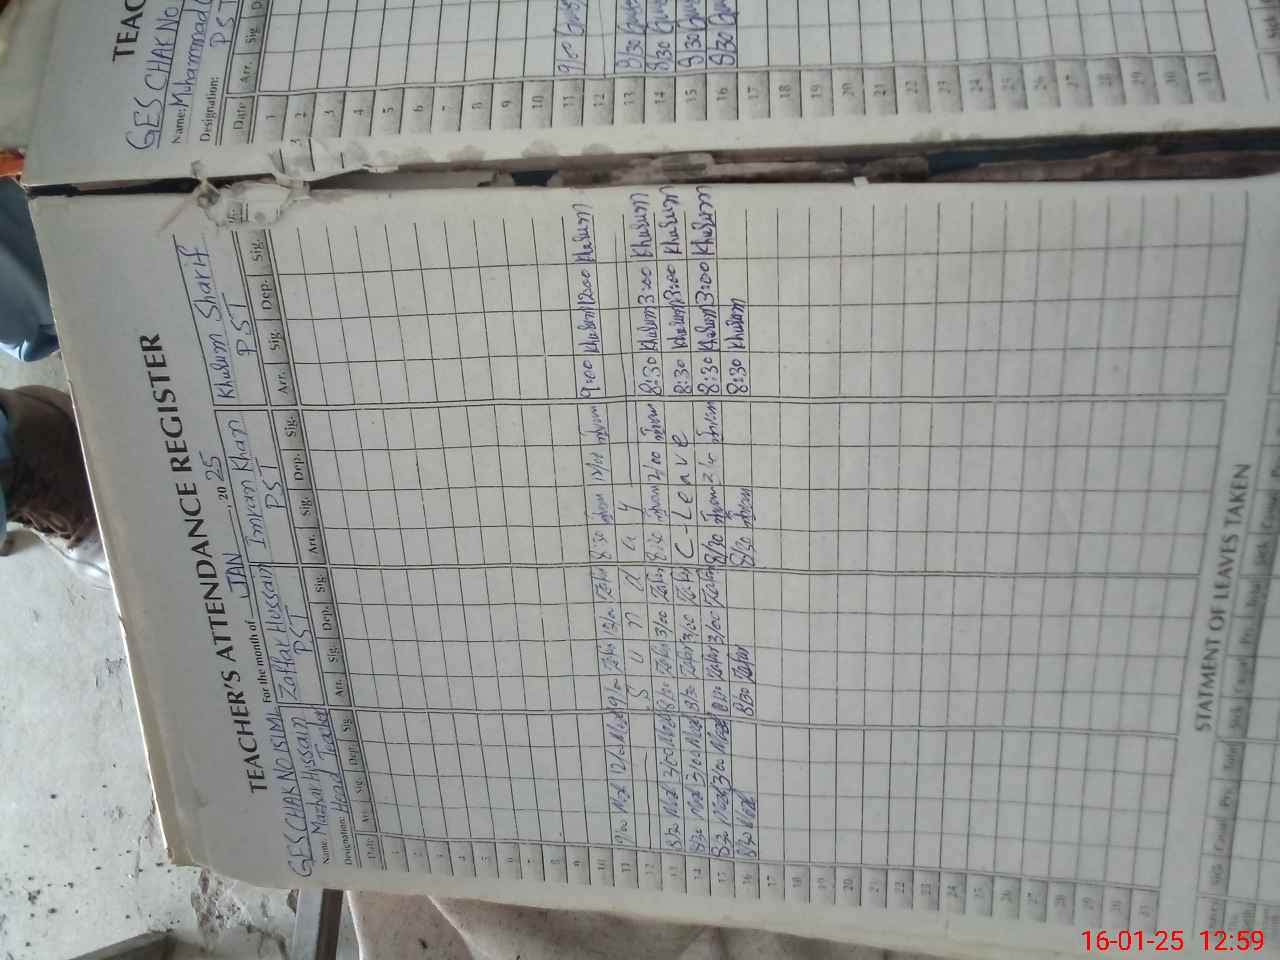 TEACHER'S ATTENDANCE REGISTER
GES CHAK NO For the month of JAN, 2025
Name: Hussain Zaffar Hussain Imran Khan Khulsum Sharif
Designation: Head Teacher PST PST PST
Date Arr. Sig. Dep. Sig. Arr. Sig. Dep. Sig. Arr. Sig. Dep. Sig. Arr. Sig. Dep. Sig.
1
2
3
4
5
6
7
8
9
10
11 9/00 12/00 9/00 Zafar 12/00 Zafar 8:30 Imran 12/00 Imran 9:00 Khulsum 12:00 Khulsum
12 S u n d a y
13 8/30 3/00 8/30 Zafar 3/00 Zafar 8:30 Imran 2/00 Imran 8:30 Khulsum 3:00 Khulsum
14 8:30 3/00 8/30 Zafar 3/00 Zafar C-Leave 8:30 Khulsum 3:00 Khulsum
15 8:30 3/00 8/30 Zafar 3/00 Zafar 8/30 Imran Imran 8:30 Khulsum 3:00 Khulsum
16 8/30 8/30 Zafar 8/30 Imran 8:30 Khulsum
17
18
19
20
21
22
23
24
25
26
27
28
29
30
31
STATMENT OF LEAVES TAKEN
Sick Casual Pri. Total Sick Casual Pri. Total Sick Casual
TEAC
GES CHAK NO
Name: Muhammad
Designation: PST
Date Arr. Sig.
1
2
3
4
5
6
7
8
9
10
11 9/00
12
13 8/30
14 8/30
15 8/30
16 8/30
17
18
19
20
21
22
23
24
25
26
27
28
29
30
31
16-01-25 12:59